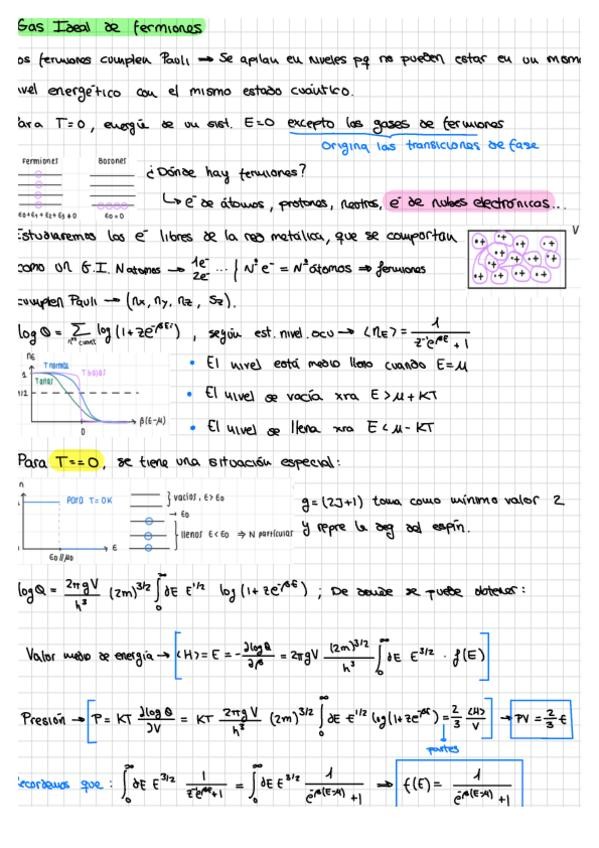 Gas Ideal de fermiones
os fermiones cumplen Pauli → Se apilan en niveles pq no pueden estar en un mom
ivel energético con el mismo estado cuántico.
ara T=0, energía de un sist. E=0 excepto los gases de fermiones
origina las transiciones de fase
Fermiones Bosones
E0+E1+E2+E3≠0 E0=0
¿Dónde hay fermiones?
↳ e⁻ de átomos, protones, neutros, e⁻ de nubes electrónicas...
Estudiaremos los e⁻ libres de la red metálica, que se comportan
V
como un G.I. N átomos → 1e⁻ 2e⁻ ... | Nº e⁻ = Nº átomos ⇒ fermiones
cumplen Pauli → (nx, ny, nz, sz).
log Q = Σ log(1+ze^-βEi), según est. nivel. ocu → <nE> = 1 / (z⁻¹e^βE + 1)
nE
1
1/2
T normal
T bajas
T altas
0
β(E-μ)
• El nivel está medio lleno cuando E=μ
• El nivel se vacía xra E>μ+KT
• El nivel se llena xra E<μ-KT
Para T==0, se tiene una situación especial:
n
1
para T=0K
E
vacios, E>E0
→ E0
llenos E<E0 ⇒ N partículas
g=(2J+1) toma como mínimo valor 2
y repre la deg del espín.
log Q = 2πgV/h³ (2m)^3/2 ∫₀^∞ dE E^1/2 log(1+ze^-βE) ; De donde se puede obtener:
Valor medio de energía → [<H> = E = -∂logQ/∂β = 2πgV (2m)^3/2/h³ ∫₀^∞ dE E^3/2 · f(E)]
Presión → [P = KT ∂logQ/∂V = KT 2πgV/h³ (2m)^3/2 ∫₀^∞ dE E^1/2 log(1+ze^-βE) = 2/3 <H>/V] → PV = 2/3 E
partes
ecordemos que: ∫₀^∞ dE E^3/2 1/(z⁻¹e^βE+1) = ∫₀^∞ dE E^3/2 1/(e^β(E-μ)+1) ⇒ f(E) = 1/(e^β(E-μ)+1)